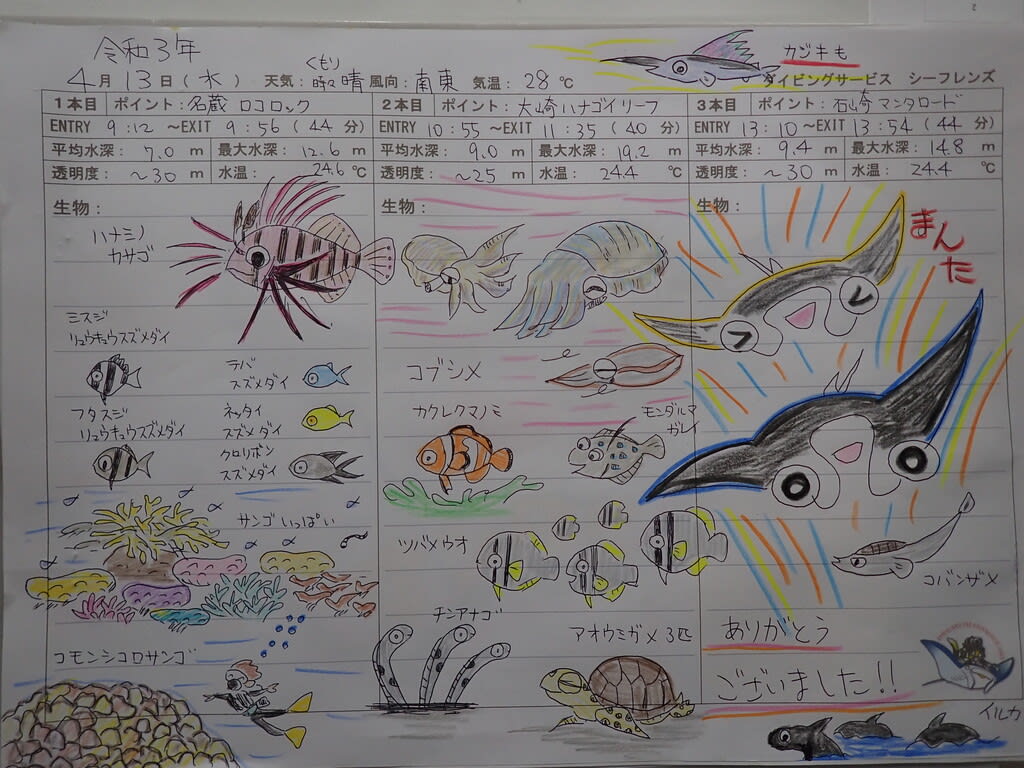 令和3年
4月13日(水) 天気:くもり時々晴 風向:南東 気温:28℃
カジキも
ダイビングサービス シーフレンズ
1本目 ポイント:名蔵 ロコロック
ENTRY 9:12 ~EXIT 9:56 (44分)
平均水深: 7.0 m 最大水深: 12.6 m
透明度: ~30 m 水温: 24.6 ℃
生物:
ハナミノ
カサゴ
ミスジ
リュウキュウスズメダイ
テバ
スズメダイ
フタスジ
リュウキュウスズメダイ
ネッタイ
スズメダイ
クロリボン
スズメダイ
サンゴいっぱい
コモンシコロサンゴ
2本目 ポイント:大崎ハナゴイリーフ
ENTRY 10:55 ~EXIT 11:35 (40分)
平均水深: 9.0 m 最大水深: 19.2 m
透明度: ~25 m 水温: 24.4 ℃
生物:
コブシメ
カクレクマノミ
モンダルマ
ガレイ
ツバメウオ
チンアナゴ
アオウミガメ3匹
3本目 ポイント:石崎マンタロード
ENTRY 13:10 ~EXIT 13:54 (44分)
平均水深: 9.4 m 最大水深: 14.8 m
透明度: ~30 m 水温: 24.4 ℃
生物:
まん
た
コバンザメ
ありがとう
ございました!!
イルカ